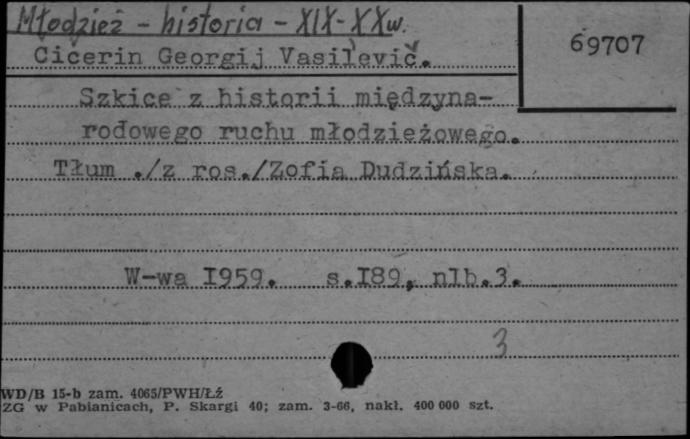 Młodzież - historia - XIX-XXw.
69707
Cicerin Georgij Vasil'evič.
Szkice z historii międzyna-
rodowego ruchu młodzieżowego.
Tłum ./z ros./Zofia Dudzińska.
W-wa I959. s.I89, nlb.3.
3
WD/B 15-b zam. 4065/PWH/Łź
ZG w Pabianicach, P. Skargi 40; zam. 3-66, nakł. 400 000 szt.